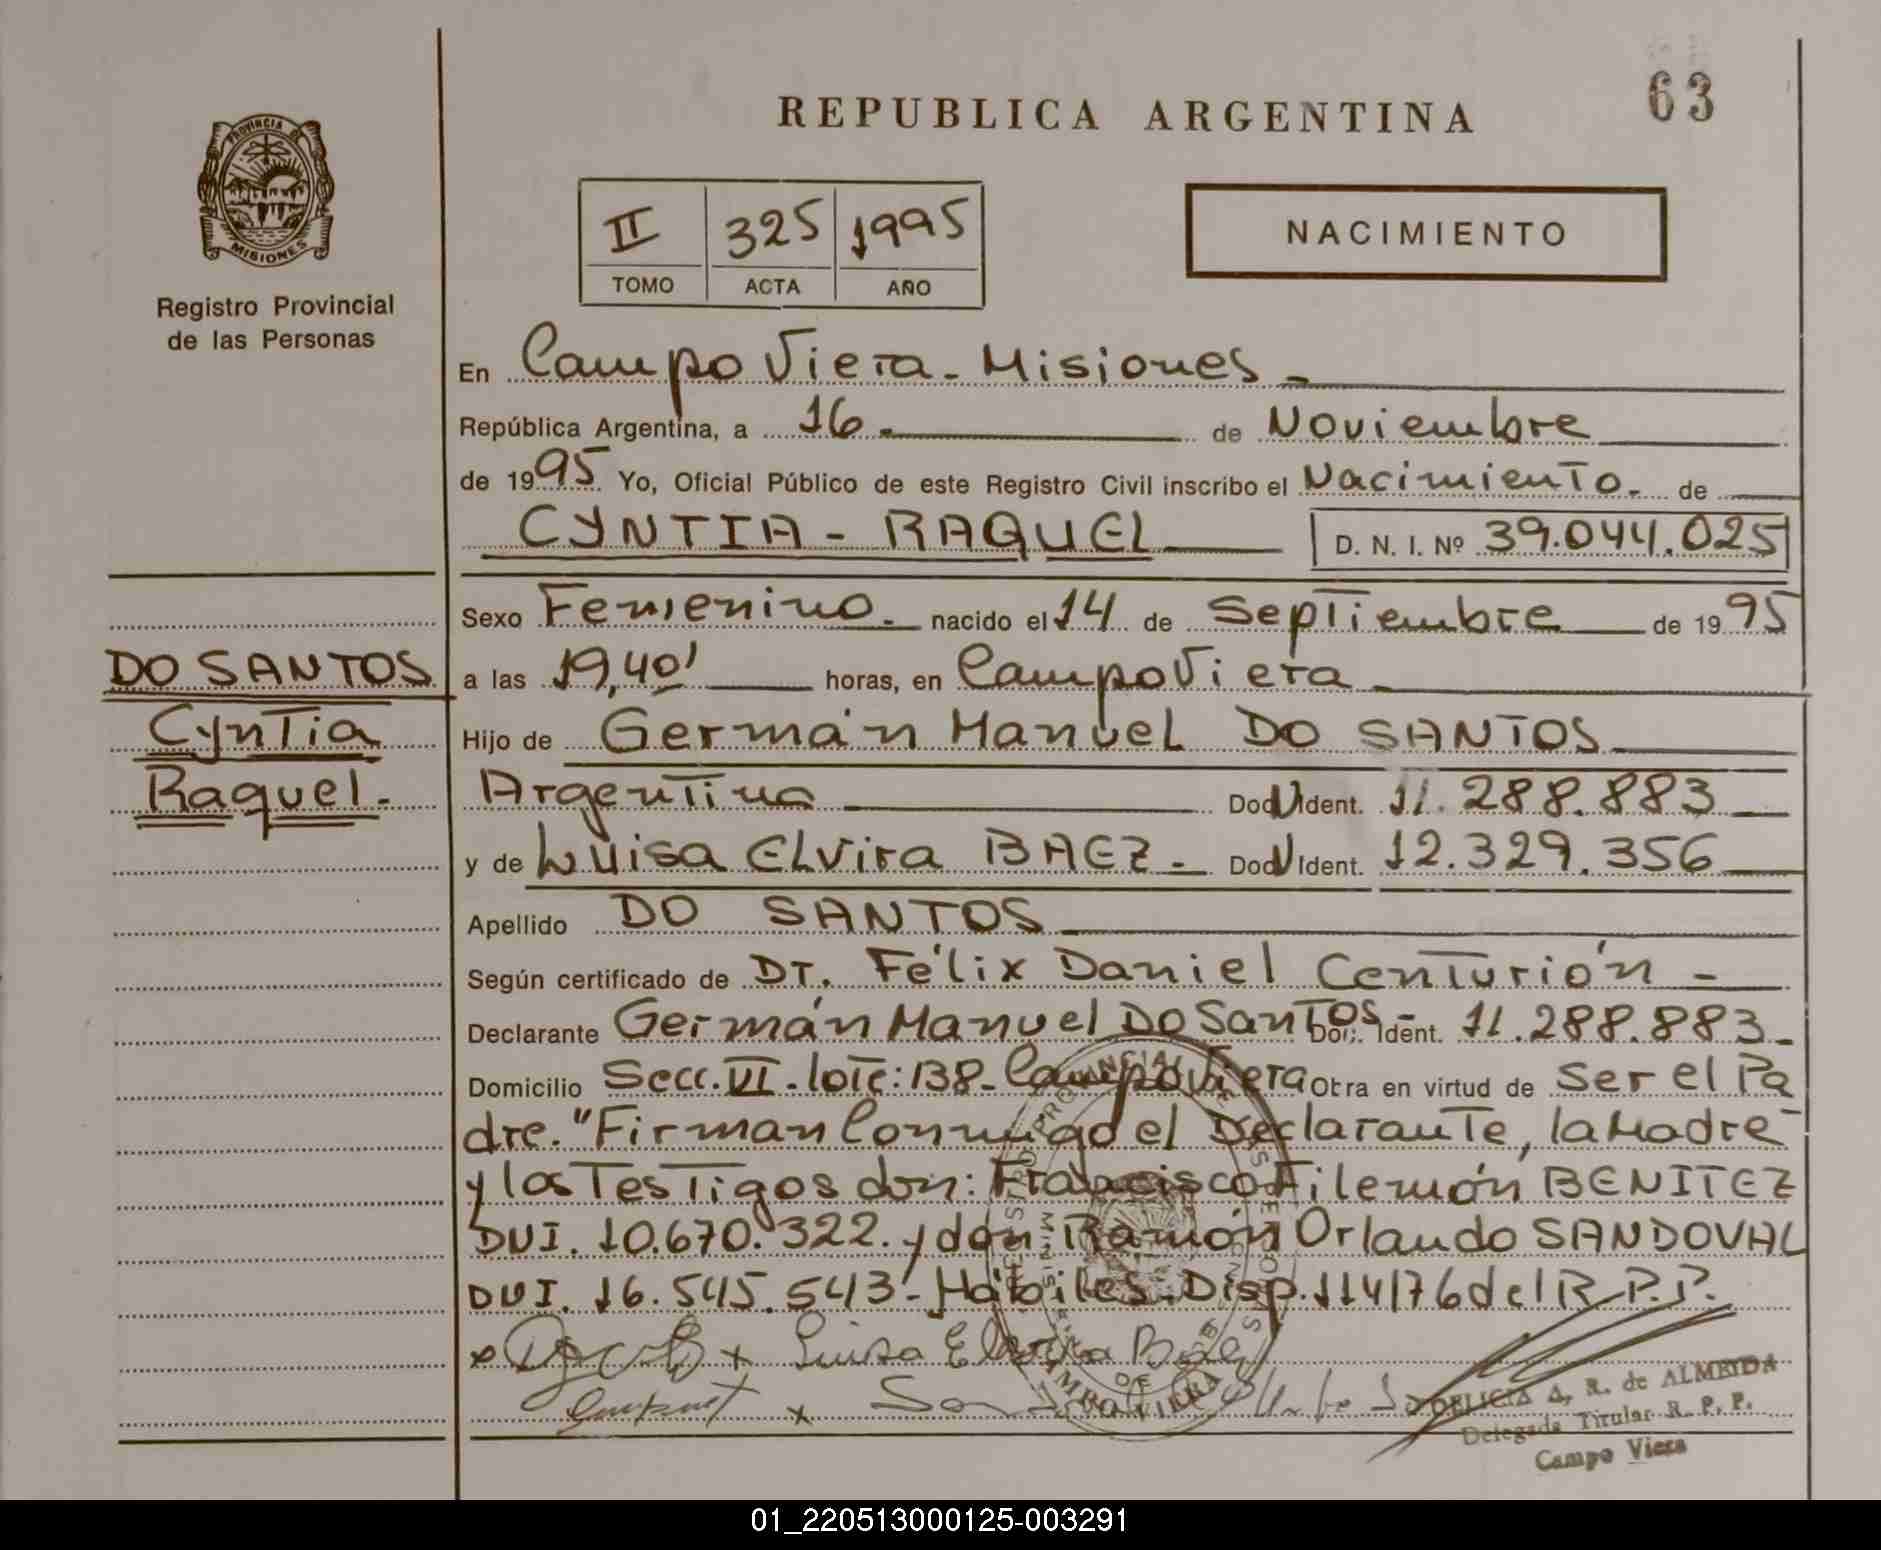 63
REPUBLICA ARGENTINA
PROVINCIA DE
MISIONES
Registro Provincial
de las Personas
II 325 1995
TOMO ACTA AÑO
NACIMIENTO
En Campo Viera - Misiones -
República Argentina, a 16 - de Noviembre
de 1995 Yo, Oficial Público de este Registro Civil inscribo el Nacimiento - de
CYNTIA - RAQUEL D. N. I. Nº 39.044.025
Sexo Femenino - nacido el 14 de Septiembre de 1995
DO SANTOS
Cyntia
Raquel -
a las 19,40' horas, en Campo Viera -
Hijo de Germán Manuel DO SANTOS
Argentina Doc. Ident. 11.288.883
y de Luisa Elvira BAEZ - Doc. Ident. 12.329.356
Apellido DO SANTOS
Según certificado de Dr. Félix Daniel Centurión -
Declarante Germán Manuel Do Santos - Doc. Ident. 11.288.883 -
Domicilio Secc. VI - lote: 138 - Campo Viera Obra en virtud de ser el Pa
dre. "Firman Conmigo el Declarante, la Madre
y los Testigos don: Francisco Filemón BENITEZ
DUI. 10.670.322. y don Ramón Orlando SANDOVAL
DUI. 16.545.543 - Hábiles. Disp. 114/76 del R.P.P.
x x Luisa Elvira Baez
x
DELICIA A. R. de ALMEIDA
Delegada Titular R. P. P.
Campo Viera
01_220513000125-003291